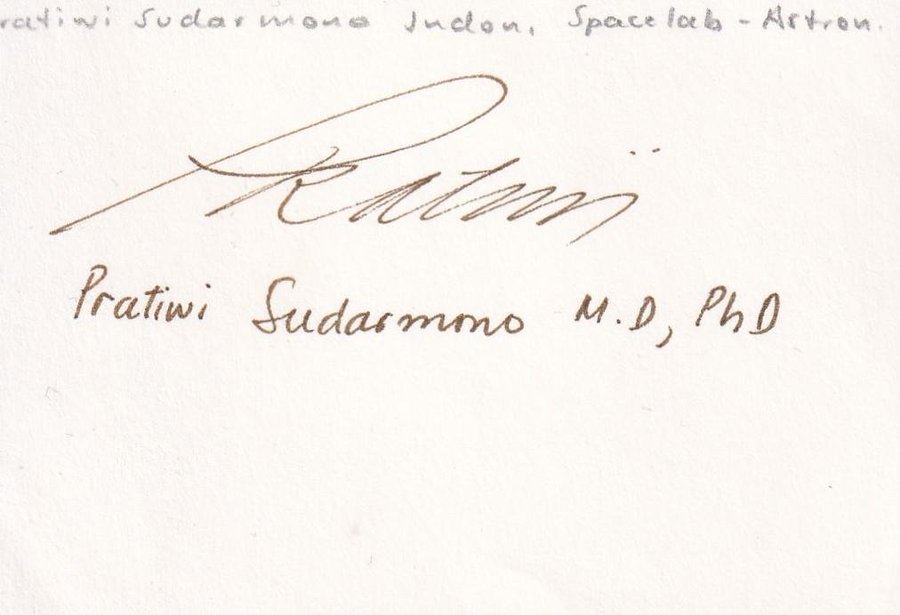 ratiwi Sudarmono Indon. Spacelab - Astron.
Pratiwi
Pratiwi Sudarmono M.D, PhD